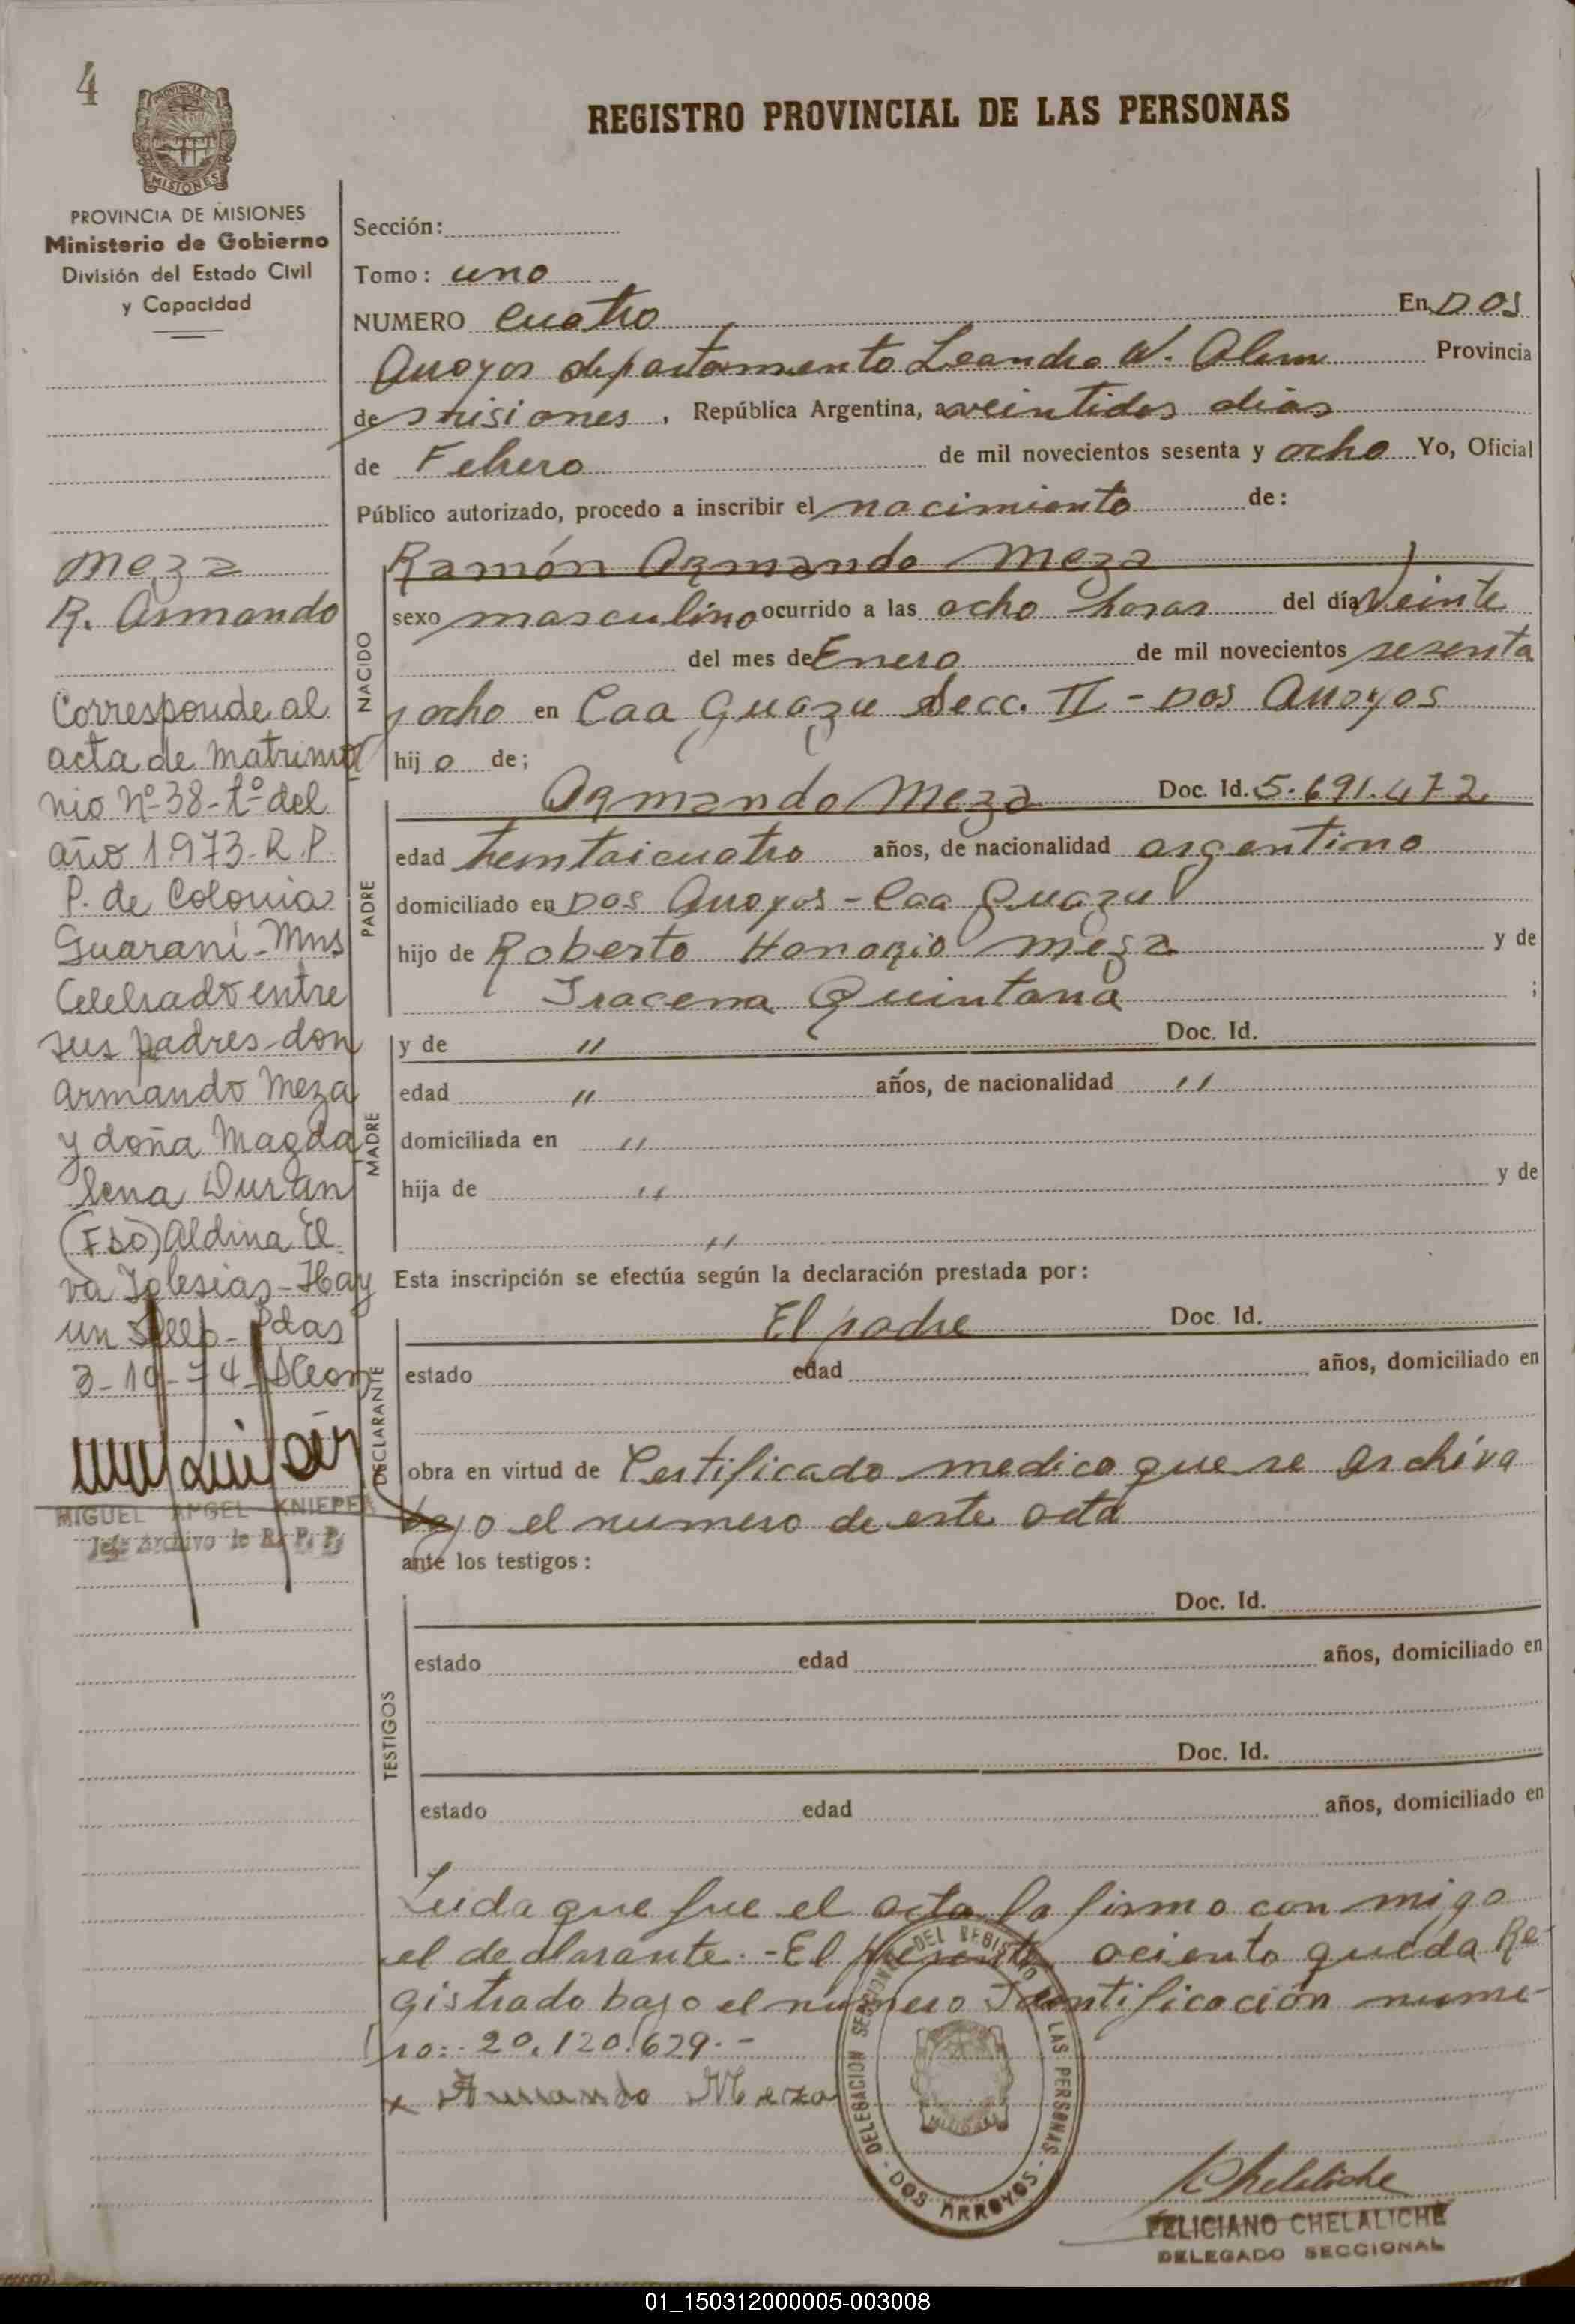 4
REGISTRO PROVINCIAL DE LAS PERSONAS
PROVINCIA DE MISIONES
Ministerio de Gobierno
División del Estado Civil
y Capacidad
MISIONES
Meza
R. Armando
Corresponde al
acta de matrimo
nio Nº 38-tº-del
año 1973-R.P.
P. de Colonia
Guaraní-Mns
Celebrado entre
sus padres don
Armando Meza
y doña Magda
lena Duran
(Fdo) Aldina El
va Iglesias-Hay
un Sello-Pdas
3-10-74-
MIGUEL ANGEL KNIEPER
Jefe Archivo de R. P. P.
Sección:
Tomo: uno
NUMERO cuatro En Dos
Arroyos departamento Leandro N. Alem Provincia
de Misiones, República Argentina, a veintidos dias
de Febrero de mil novecientos sesenta y ocho Yo, Oficial
Público autorizado, procedo a inscribir el nacimiento de:
NACIDO
Ramón Armando Meza
sexo masculino ocurrido a las ocho horas del día Veinte
del mes de Enero de mil novecientos sesenta
y ocho en Caa Guazu Secc. II - Dos Arroyos
hijo de;
PADRE
Armando Meza Doc. Id. 5.691.472
edad treintaicuatro años, de nacionalidad argentino
domiciliado en Dos Arroyos - Caa Guazu
hijo de Roberto Honorio Meza y de
Iracema Quintana ;
MADRE
y de " Doc. Id.
edad " años, de nacionalidad "
domiciliada en "
hija de " y de
"
Esta inscripción se efectúa según la declaración prestada por:
DECLARANTE
El padre Doc. Id.
estado edad años, domiciliado en
obra en virtud de Certificado medico que se archiva
bajo el numero de este acta
ante los testigos:
TESTIGOS
Doc. Id.
estado edad años, domiciliado en
Doc. Id.
estado edad años, domiciliado en
Leida que fue el acta la firma con migo
el declarante.-El presente aciento queda Re-
gistrado bajo el numero Identificación nume-
ro: 20.120.629.-
x Armando Meza
DELEGACION SECCIONAL DEL REGISTRO LAS PERSONAS - DOS ARROYOS -
Chelaliche
FELICIANO CHELALICHE
DELEGADO SECCIONAL
01_150312000005-003008